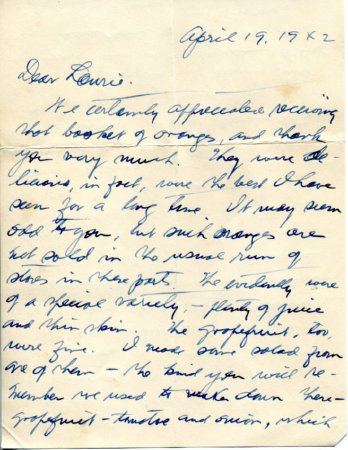 April 19, 1942
Dear Lourie.
We certainly appreciated receiving
that basket of oranges, and thank
you very much. They were de-
licious, in fact, were the best I have
seen for a long time. It may seem
odd to you, but such oranges are
not sold in the usual run of
stores in these parts. The evidently were
of a special variety, - plenty of juice
and thin skin. The grapefruit, too,
were fine. I made some salad from
one of them - the kind you will re-
member we used to make down there -
grapefruit - tomatoe and onion, which